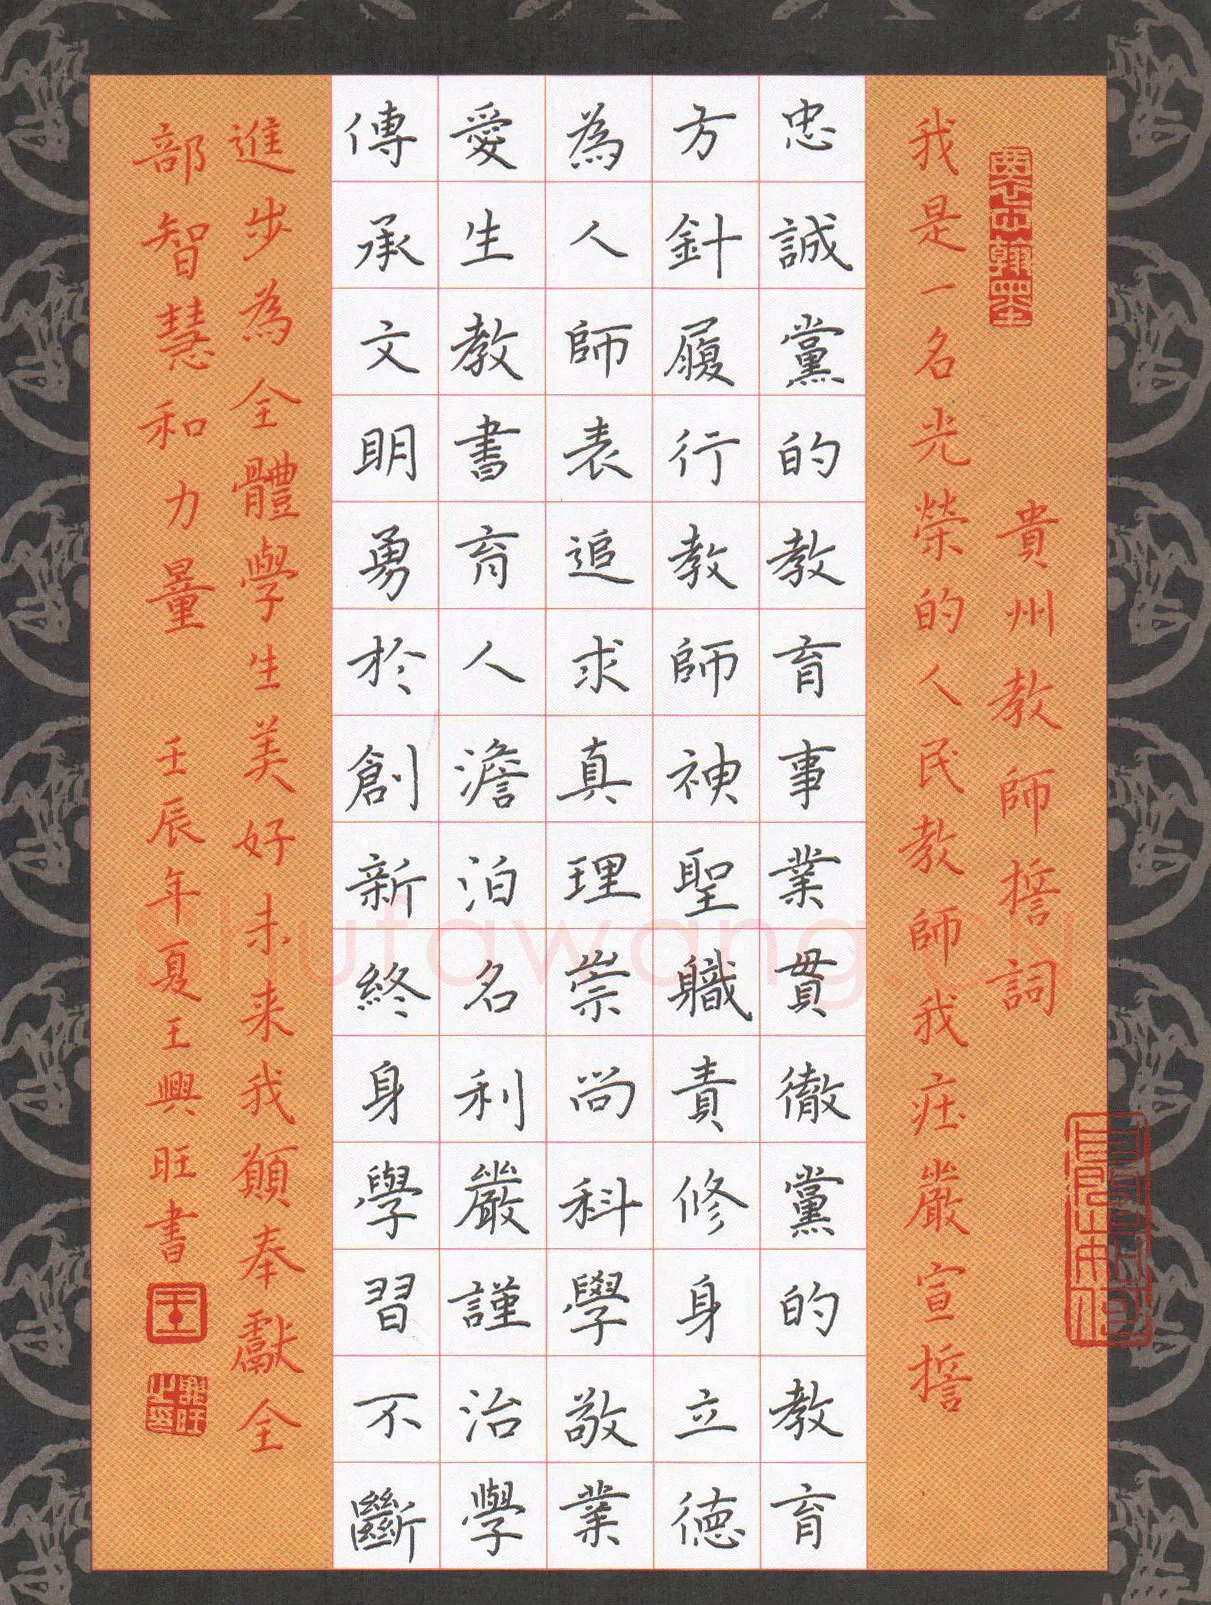 貴州教師誓詞
我是一名光榮的人民教師我莊嚴宣誓
忠誠黨的教育事業貫徹黨的教育
方針履行教師神聖職責修身立德
為人師表追求真理崇尚科學敬業
愛生教書育人澹泊名利嚴謹治學
傳承文明勇於創新終身學習不斷
進步為全體學生美好未来我願奉獻全
部智慧和力量 壬辰年夏王興旺書
Shufawang.cn